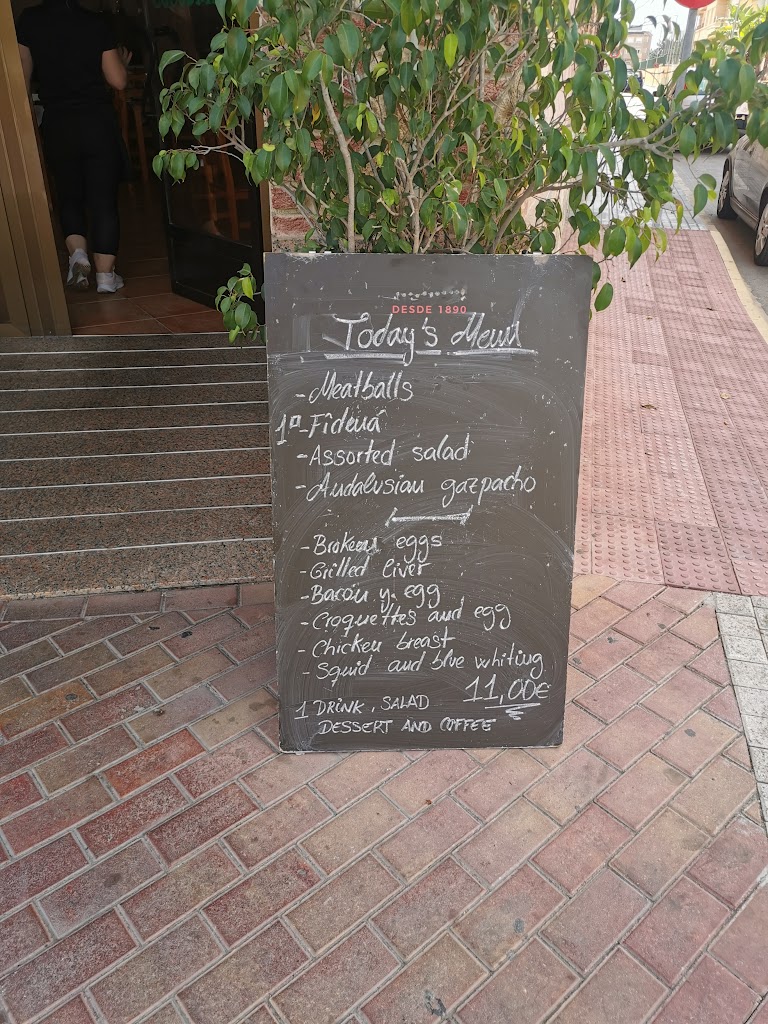 DESDE 1890
Today's Menu
- Meatballs
1º - Fideuá
- Assorted salad
- Andalusian gazpacho
- Broken eggs
- Grilled liver
- Bacon y egg
- Croquettes and egg
- Chicken breast
- Squid and blue whiting
11,00€
1 DRINK, SALAD
DESSERT AND COFFEE